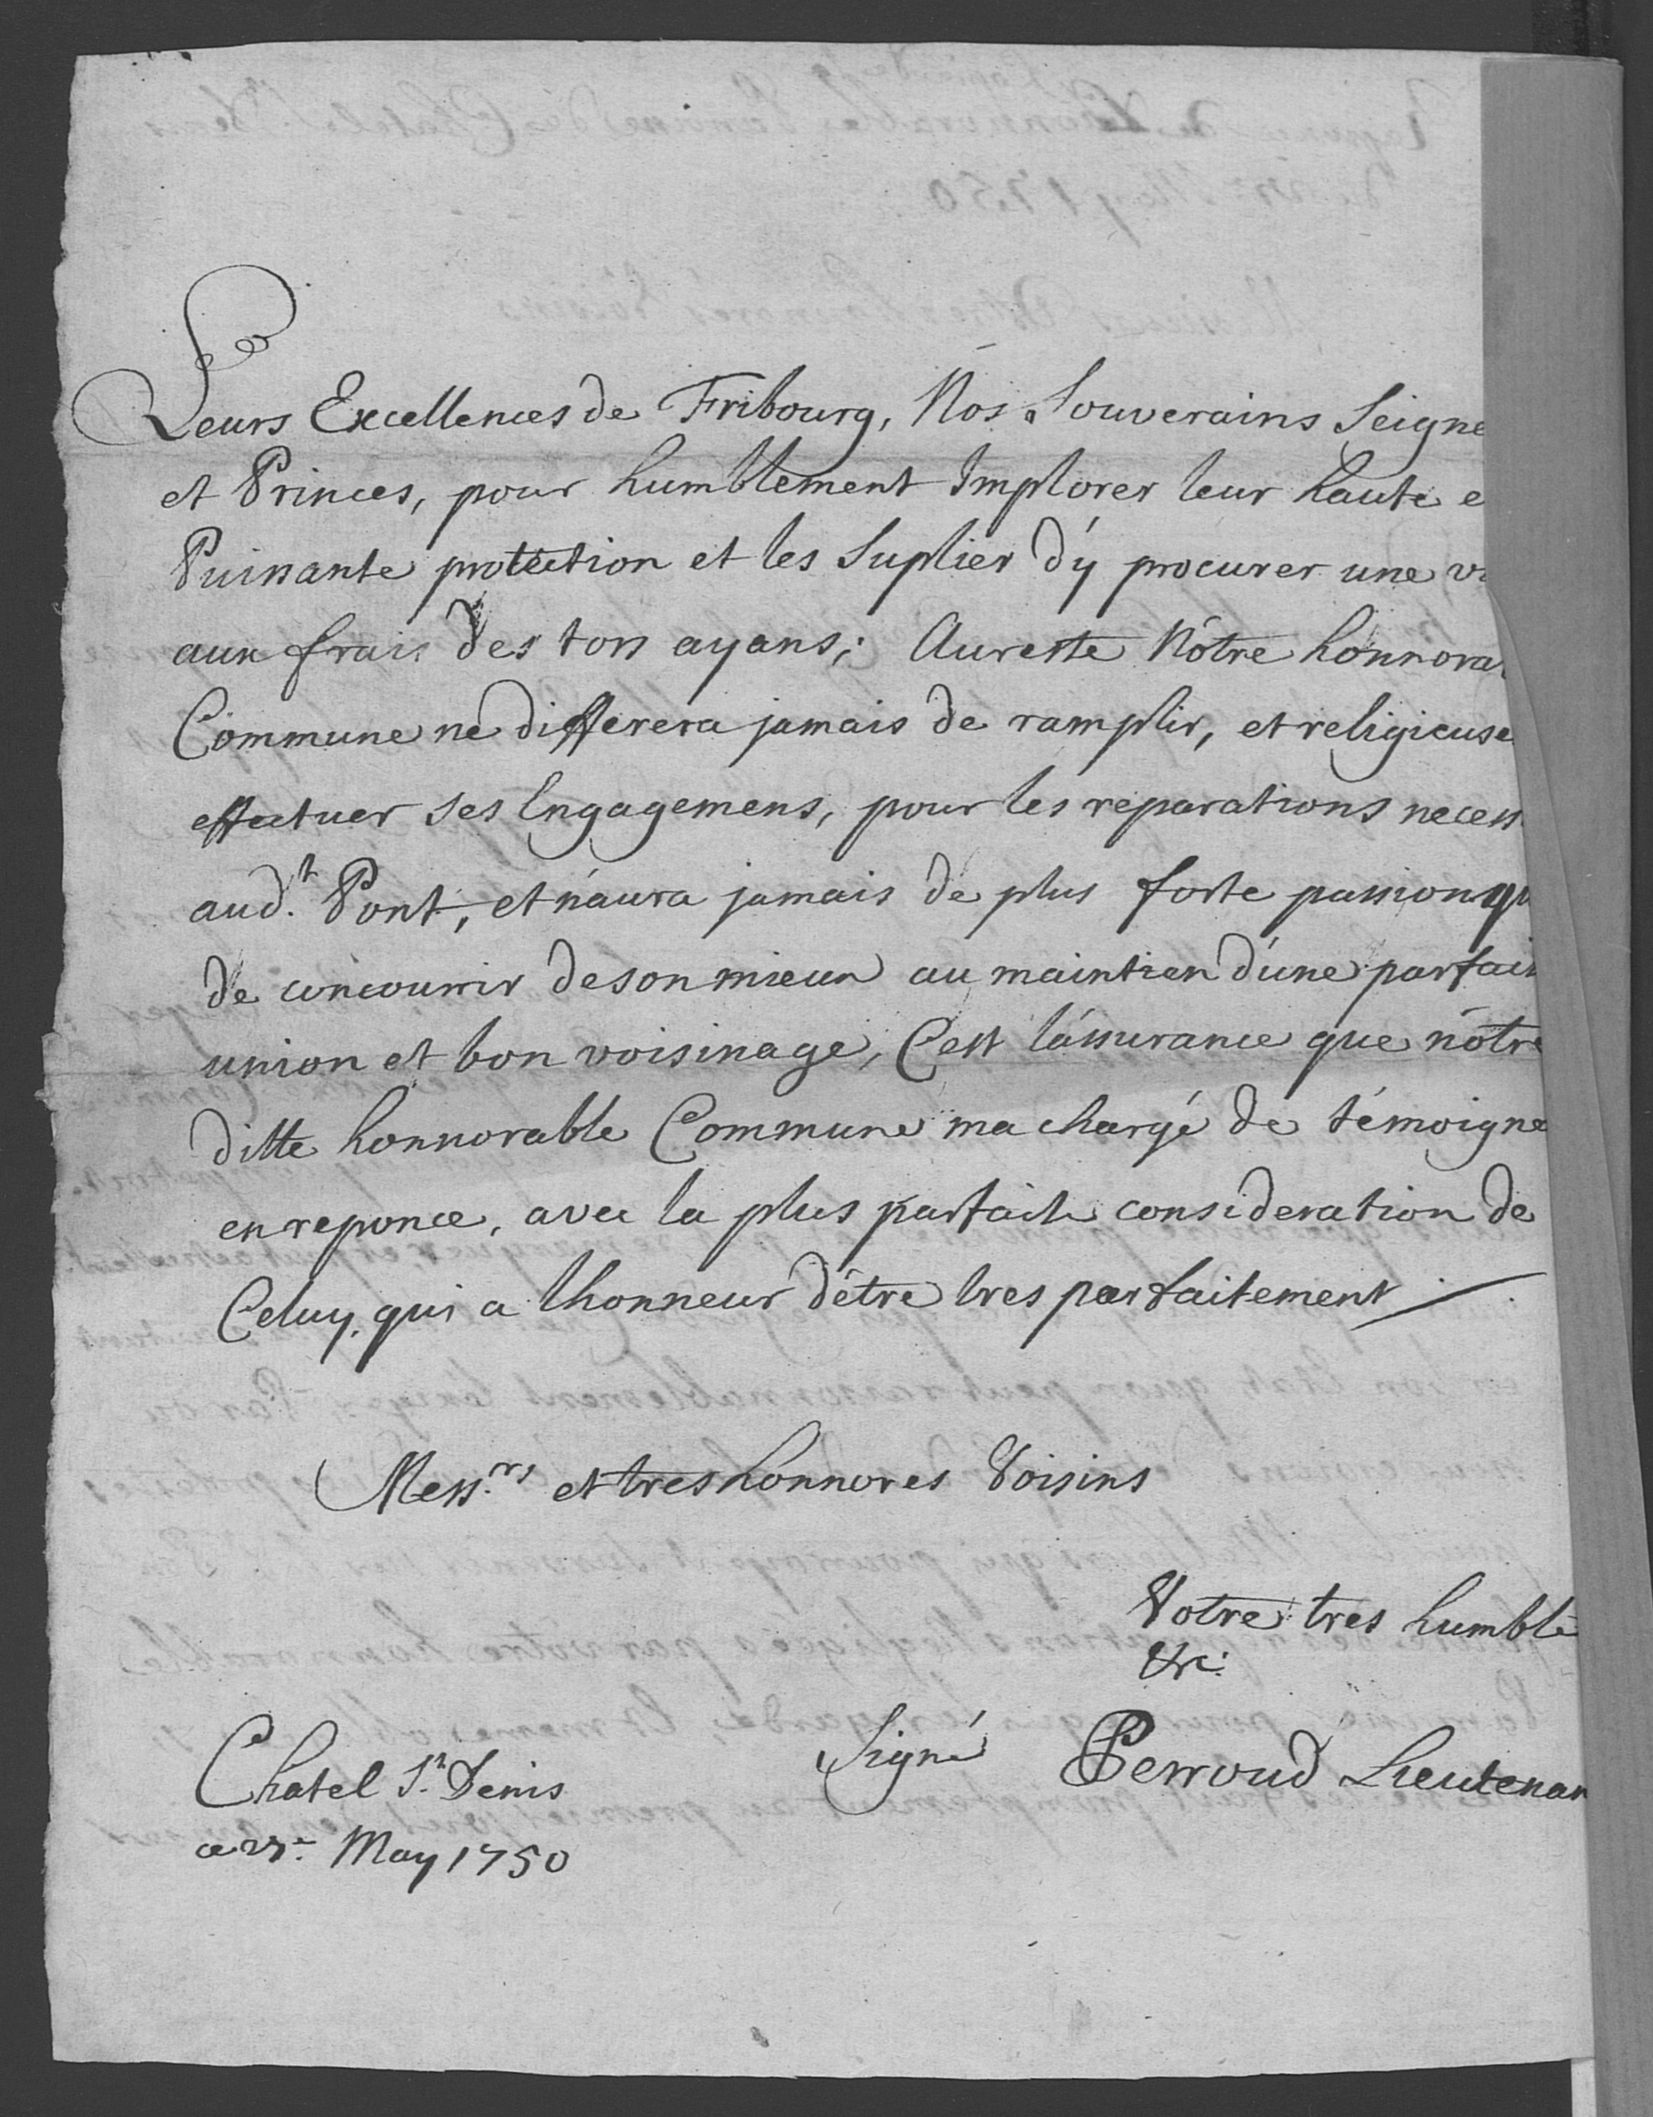 Leurs Excellences de Fribourg, Nos Souverains Seigne
et Princes, pour humblement Implorer leur haute e
Puissante protection et les Suplier d'y procurer une v
aux frais des tors ayans; Aureste Nôtre honnora
Commune ne differera jamais de ramplir, et religieuse
effectuer ses Engagemens, pour les reparations necess
aud.t Pont, et n'aura jamais de plus forte passion qu
de concourrir de son mieux au maintien d'une parfait
union et bon voisinage, C'est l'assurance que nôtre
ditte honnorable Commune ma chargé de témoigne
en reponce, avec la plus parfaite consideration de
Celuy, qui a lhonneur d'être tres parfaitement
Mess.rs et tres honnores Voisins
Votre tres humble
&c:
Signé Perroud Lieutenan
Chatel S.t Denis
ce May 1750